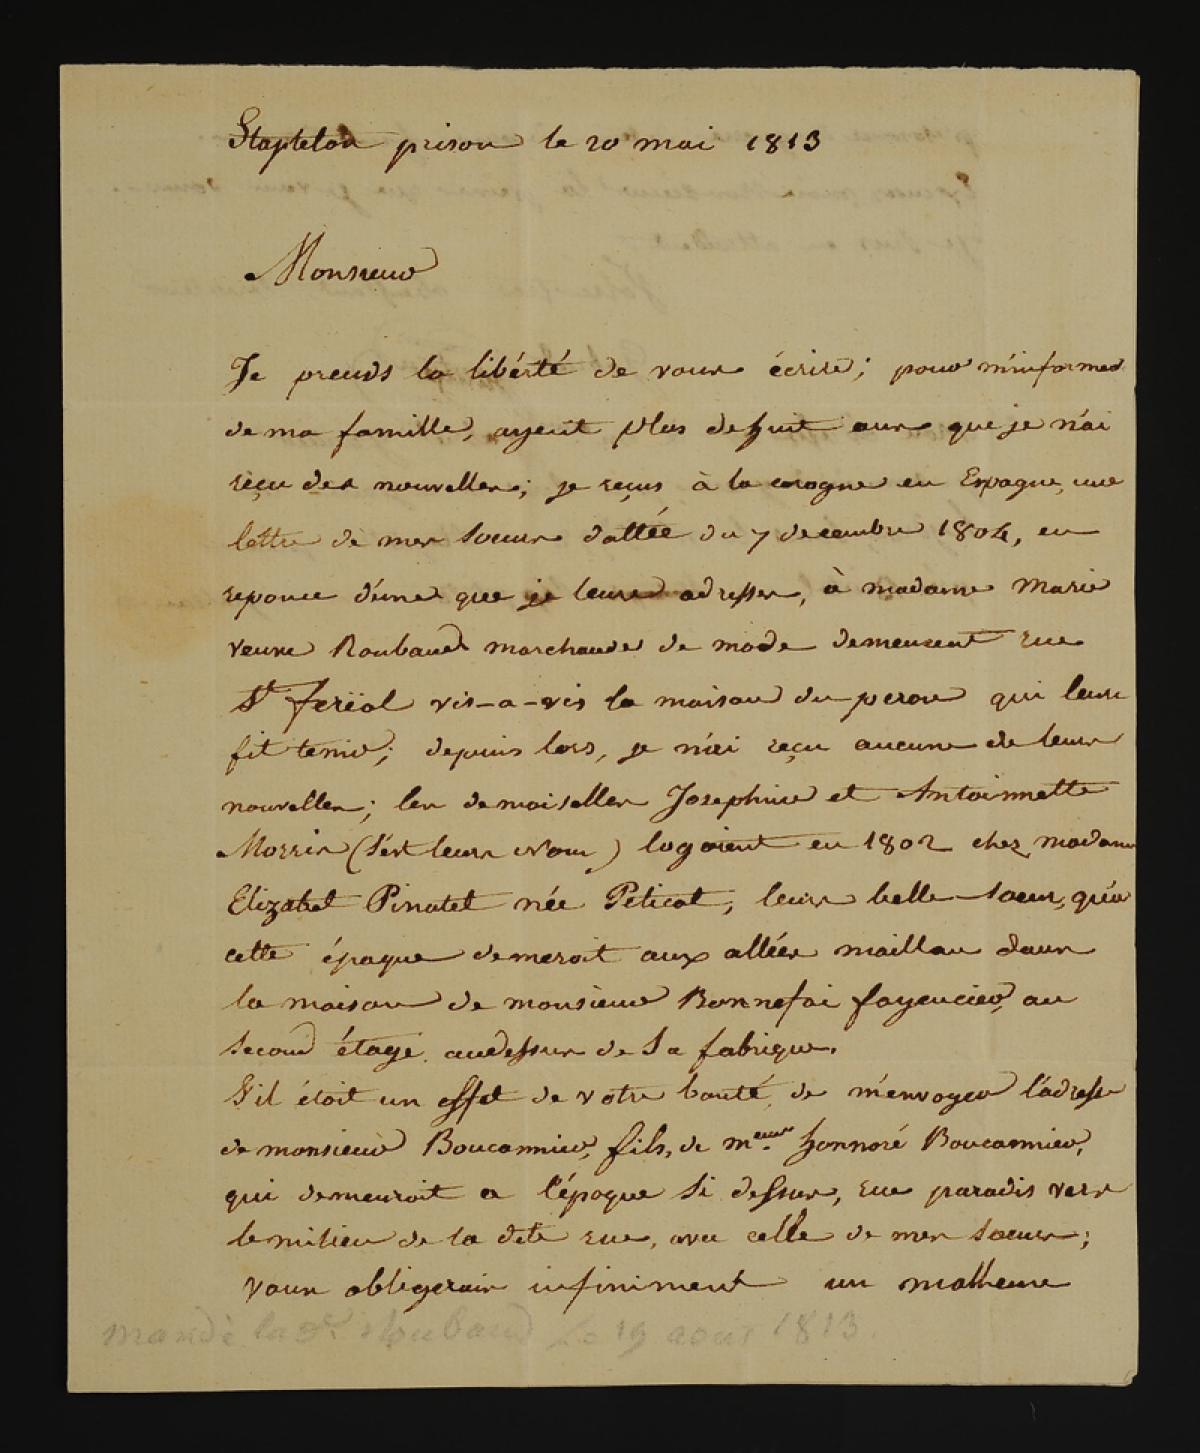 Stapleton prison le 20 mai 1813
Monsieur
Je prends la libérté de vous écrire; pour m'informer
de ma famille, ayent plus de huit ans que je n'ai
reçu des nouvelles; je reçus à la corogne en Espagne, une
lettre de mes soeurs dattée du 7 decembre 1804, en
reponce d'une que je leurs adresser, à madame Marie
veuve Roubaud marchande de mode demeurent rue
St feréol vis-a-vis la maison du perou qui leurs
fit tenir; depuis lors, je n'ai reçu aucune de leurs
nouvelles; les demoiselles Josephine et Antoinnette
Morrin (s'est leurs Nom) logoient en 1802 chez madame
Elizabet Pinatel née Peticot, leurs belle-soeur, qu'a
cette époque demeroit aux allées maillan dans
la maison de monsieur Bonnefai fayencier, au
second étage audessus de sa fabrique.
S'il étoit un effet de votre bonté, de m'envoyer l'adresse
de monsieur Boucannier, fils, de m.eur honnoré Boucannier,
qui demeuroit a l'époque si dessus, rue paradis vers
le milieu de la dete rue, avec celle de mes soeurs;
vous obligerais infiniment un malheure
Mandé la De Roubaud le 19 aout 1813.